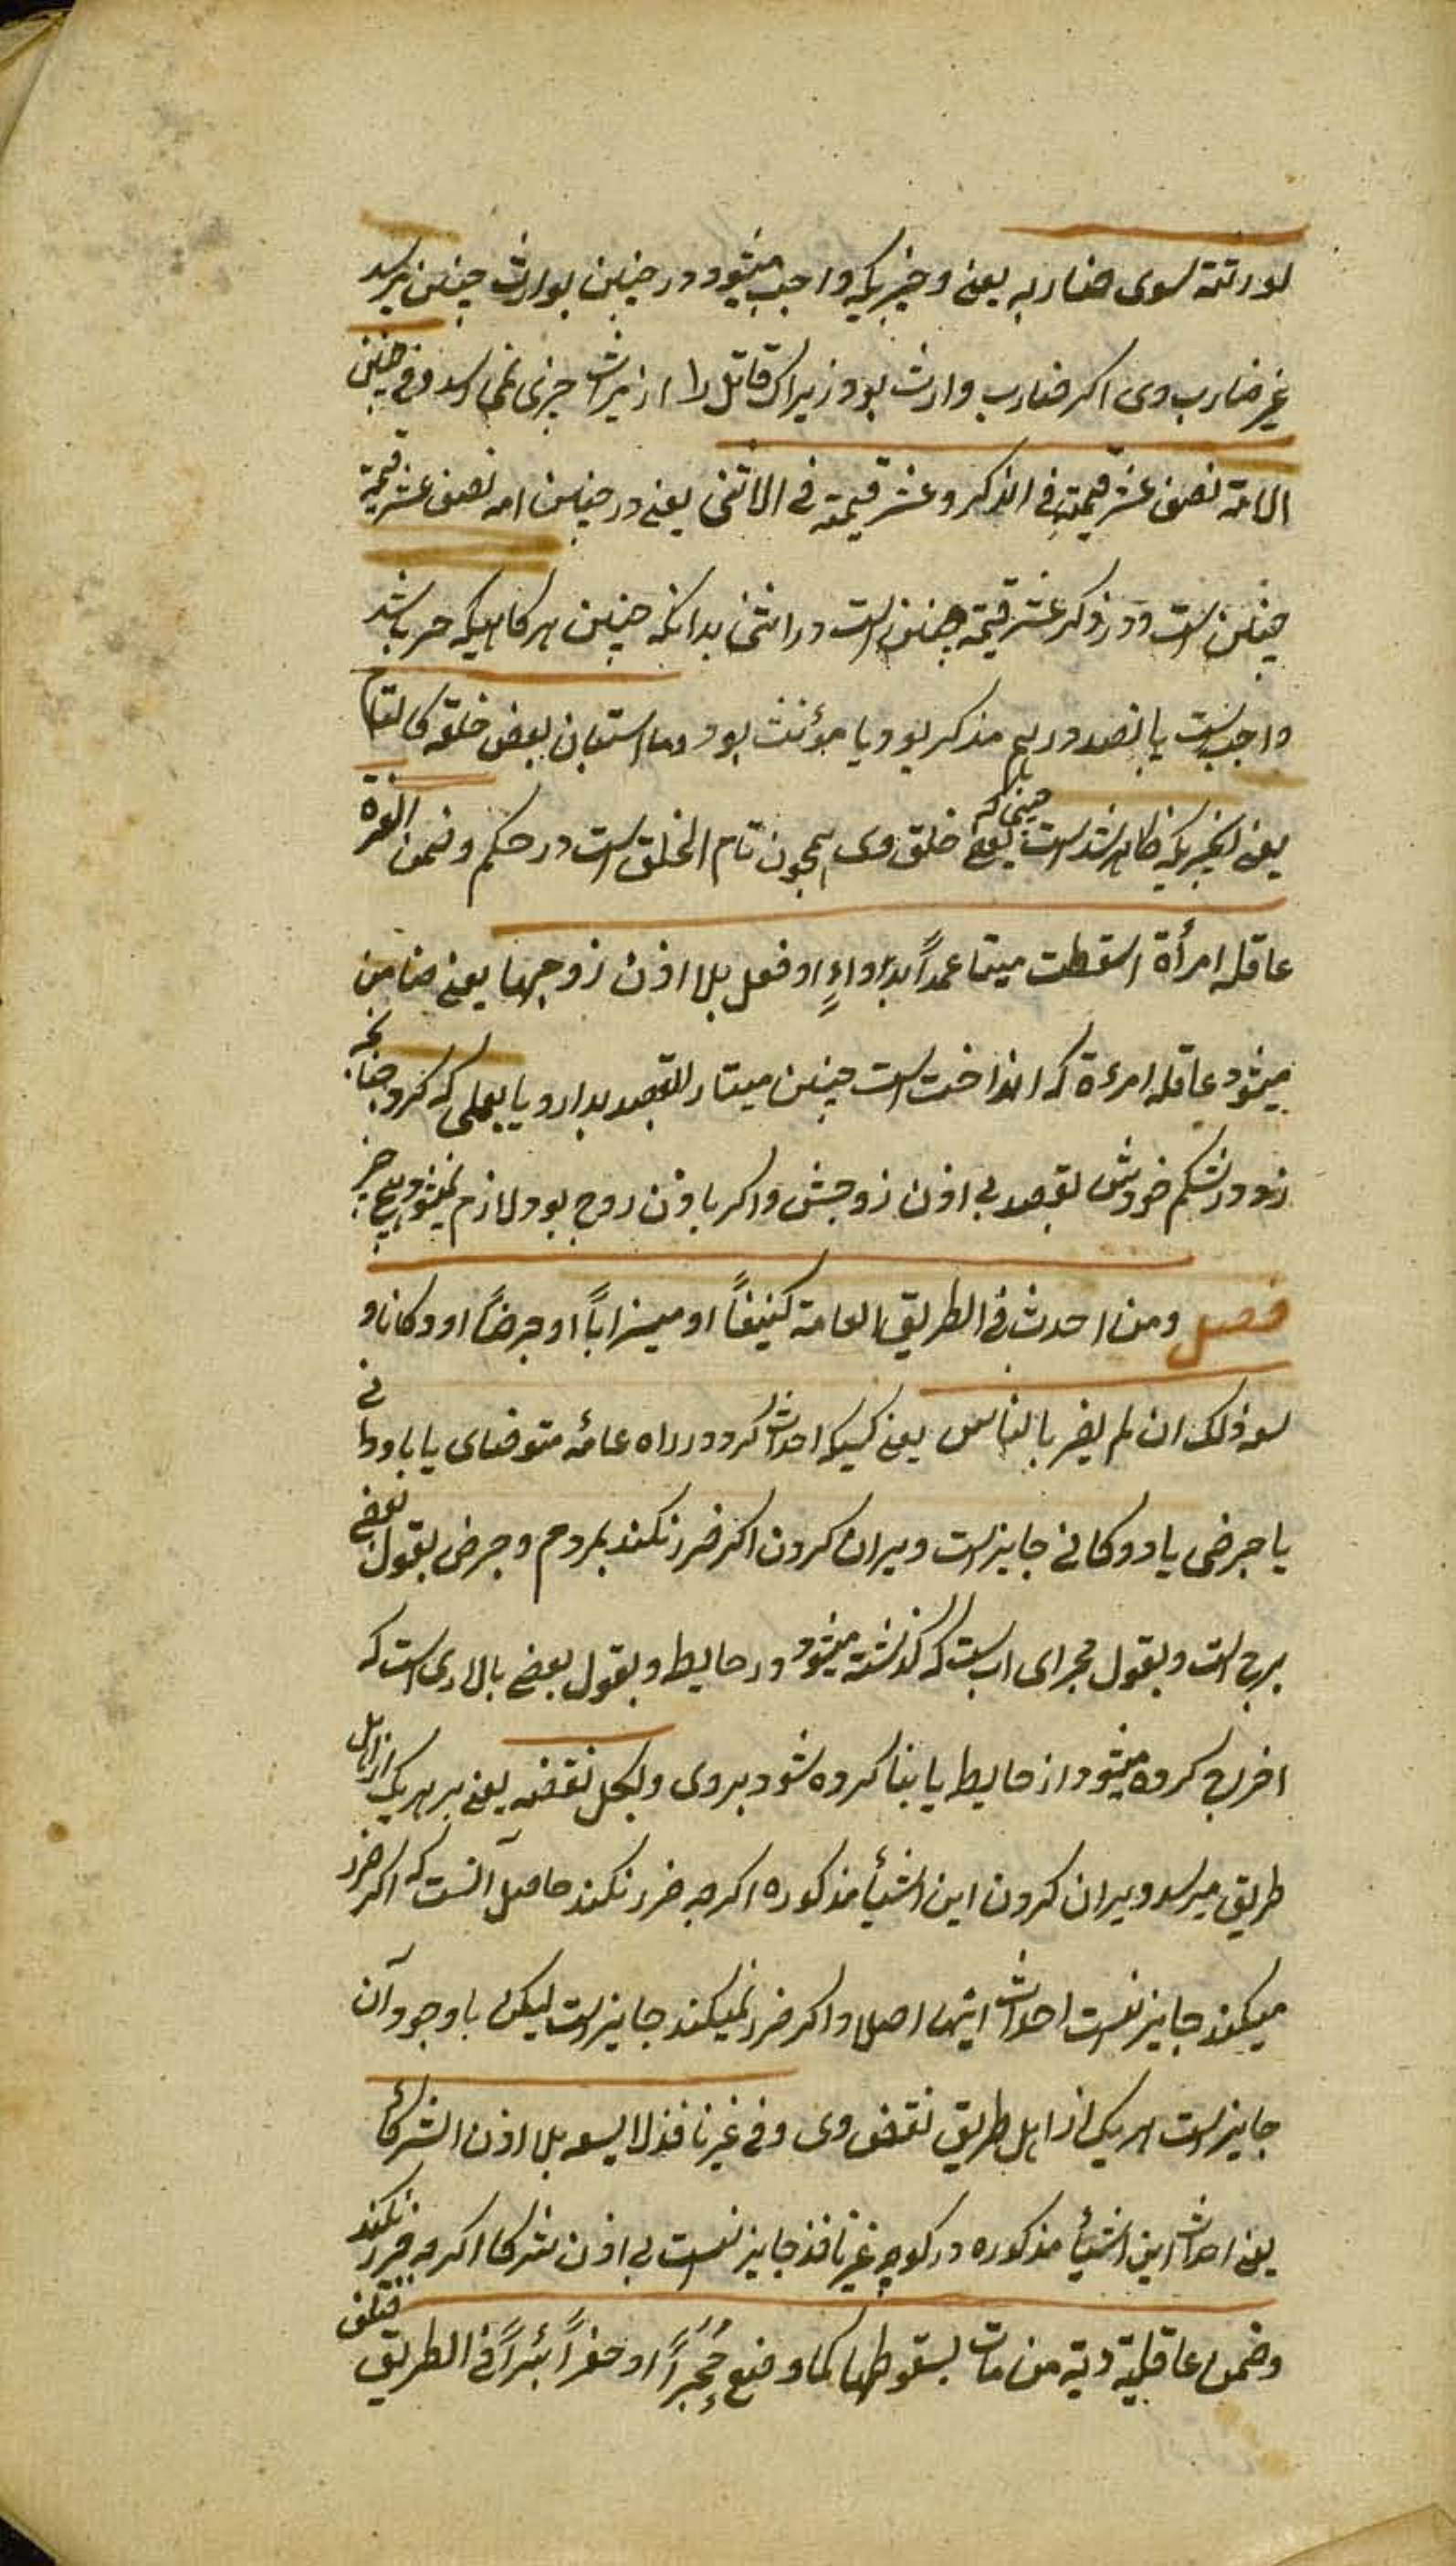 لورثته سوی ضاربه یعنی و چیزیکه واجب میشود در جنین بوارث جنین میرسد
غیر ضارب وی اکر ضارب وارث بود زیراکه قاتل را از میراث چیزی نمی رسد و فی جنین
الامة نصف عشر قیمته فی الذکر و عشر قیمته فی الانثی یعنی در جنین امه نصف عشر قیمة
جنین است در ذکر و عشر قیمة جنین است در انثی بدانکه جنین هر کاهیکه حر باشد
واجب است پانصد درهم مذکر بود یا مؤنث بود وما استبان بعض خلقه کالتام
یعنی چیزیکه ظاهر شده است بعضی خلق وی همچون تام الخلق است در حکم وضمن الغرة
عاقلة امرأة اسقطت میتا عمداً بدواءٍ او فعل بلا اذن زوجها یعنی ضامن
میشود عاقله امرءة که انداخت است جنین میتا را بقصد بدارو یا بعملی که کرد چنانچه
زد در شکم خودش بقصد بی اذن زوجش و اکر باذن زوج بود لازم نمیشود هیچ چیز
فصل ومن احدث فی الطریق العامة کنیفاً او میزاباً او جرضاً او دکانا و
سعه ذلک ان لم یضر بالناس یعنی کسیکه احداث کرد در راه عامه متوضای یا ناودانی
یا جرضی یا دوکانی جایز است ویران کردن اکر ضرر نکند بمردم و جرض بقول بعضی
برج است و بقول مجرای اب است که کذشته میشود در حایط و بقول بعضی بالاری است که
اخراج کرده میشود از حایط یا بنا کرده شود بروی ولکل نقضه یعنی بر هر یک از اهل
طریق میرسد ویران کردن این اشیأ مذکوره اکرچه ضرر نکند حاصل آنست که اکر ضرر
میکند جایز نیست احداث اینها اصلا و اکر ضرر نمیکند جایز است لیکن باوجود آن
جایز است هر یک از اهل طریق نقض وی وفی غیر نافذ لا یسعه بلا اذن الشرکاء
یعنی احداث این اشیأ مذکوره در کوچه غیر نافذ جایز نیست بی اذن شرکا اکرچه ضرر نکند
وضمن عاقلته دیة من مات بسقوطها کما وضع حجراً او حفر بئراً فی الطریق فتلف